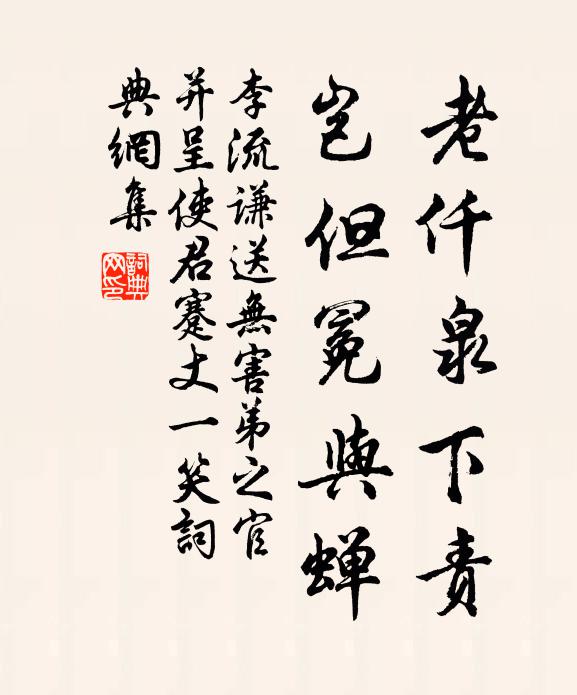 老仟泉下責
豈但冕與蟬
李流謙送無害弟之官
并呈使君蹇丈一笑詞
典網集
詞典網印